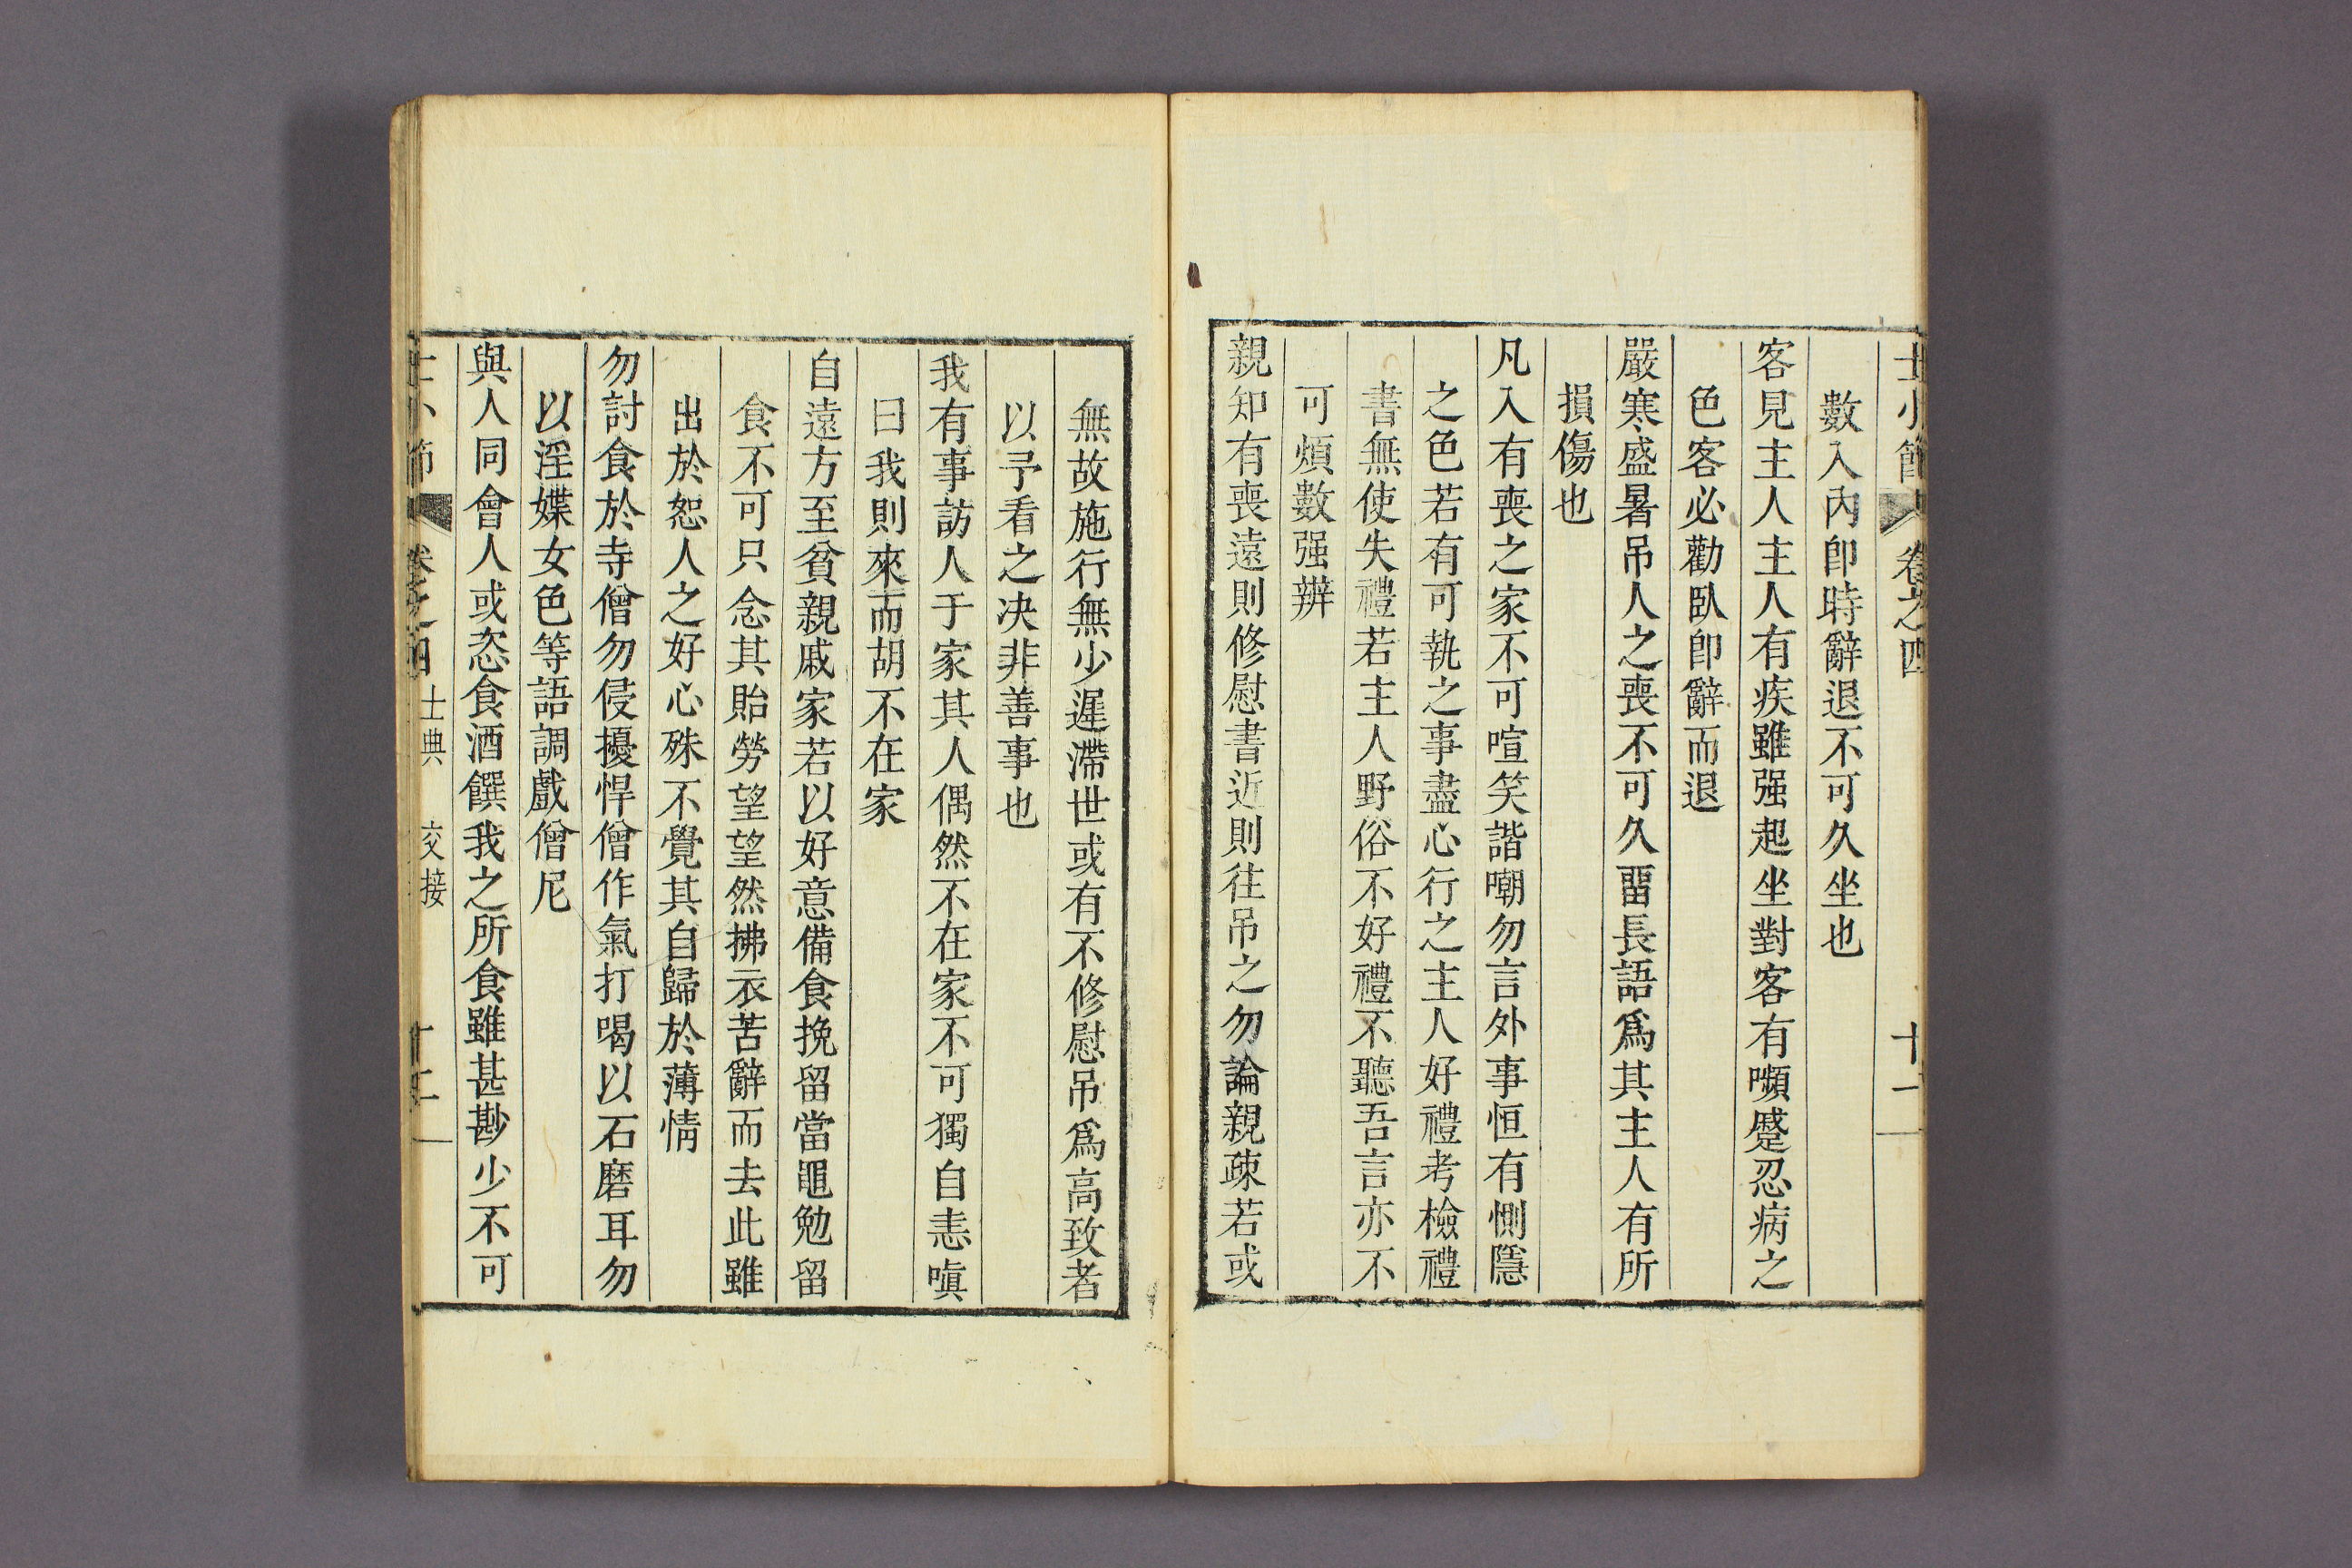 士小節 卷之四 十二
數入內卽時辭退不可久坐也
客見主人主人有疾雖强起坐對客有嚬蹙忍病之
色客必勸臥卽辭而退
嚴寒盛暑吊人之喪不可久畱長語爲其主人有所
損傷也
凡入有喪之家不可喧笑諧嘲勿言外事恒有惻隱
之色若有可執之事盡心行之主人好禮考檢禮
書無使失禮若主人野俗不好禮不聽吾言亦不
可煩數强辨
親知有喪遠則修慰書近則往吊之勿論親疎若或
無故施行無少遲滯世或有不修慰吊爲高致者
以予看之决非善事也
我有事訪人于家其人偶然不在家不可獨自恚嗔
曰我則來而胡不在家
自遠方至貧親戚家若以好意備食挽留當黽勉留
食不可只念其貽勞望望然拂衣苦辭而去此雖
出於恕人之好心殊不覺其自歸於薄情
勿討食於寺僧勿侵擾悍僧作氣打喝以石磨耳勿
以淫媟女色等語調戲僧尼
與人同會人或恣食酒饌我之所食雖甚尠少不可
士小節 卷之四 士典 交接